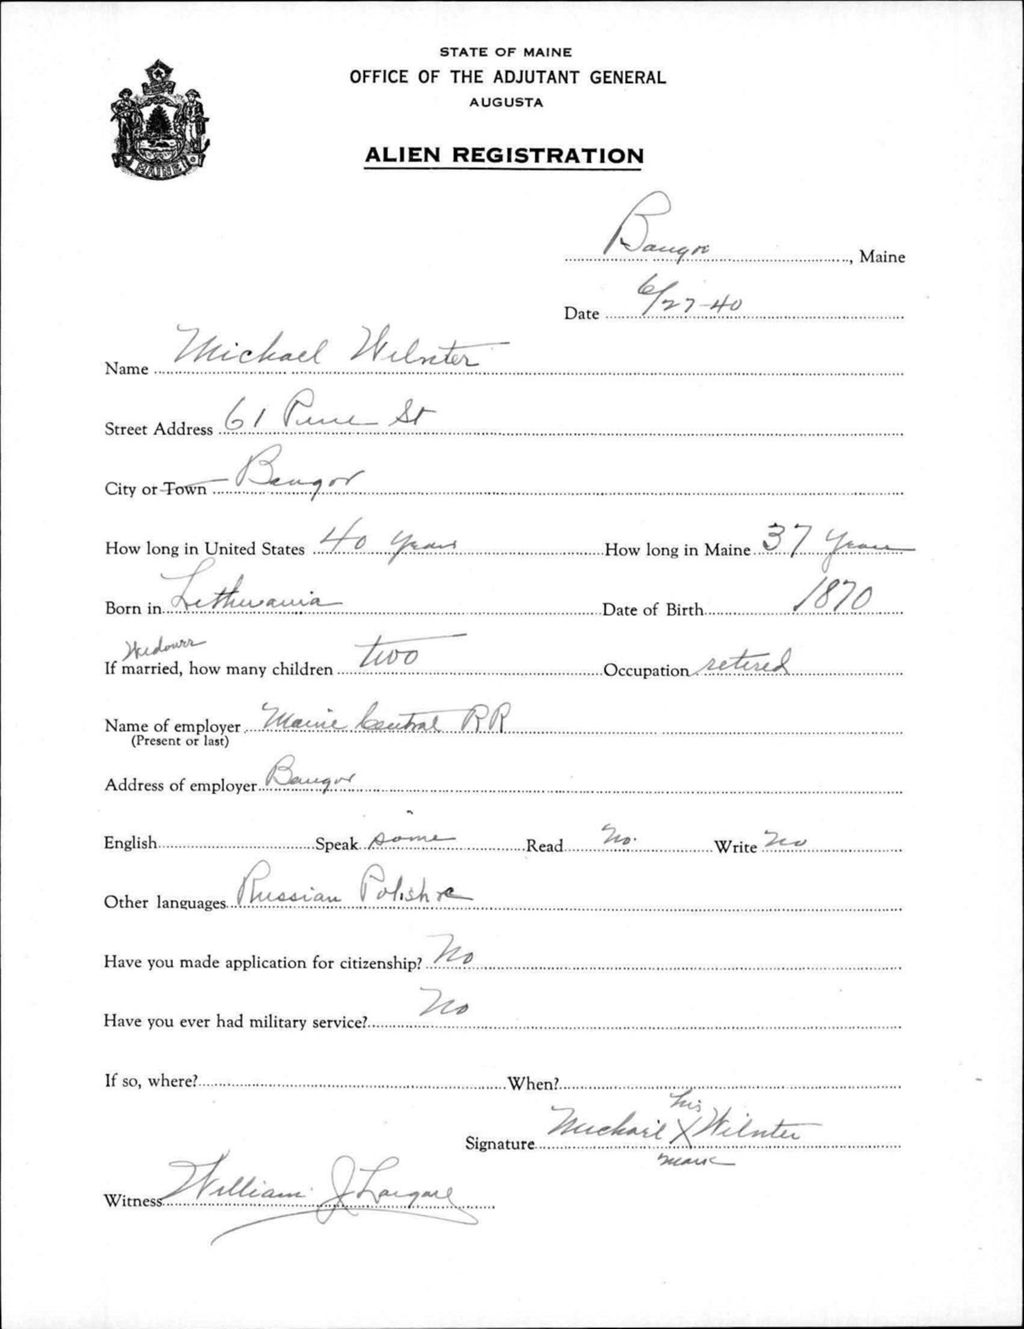 STATE OF MAINE
OFFICE OF THE ADJUTANT GENERAL
AUGUSTA
MAINE
ALIEN REGISTRATION
Bangor, Maine
Date 6/27-40
Name Michael Wilnter
Street Address 61 Pine St
City or Town Bangor
How long in United States 40 years How long in Maine 37 years
Born in Lithuania Date of Birth 1870
Widower
If married, how many children two Occupation retired
Name of employer Maine Central RR
(Present or last)
Address of employer Bangor
English Speak some Read No. Write No
Other languages Russian Polish
Have you made application for citizenship? No
Have you ever had military service? No
If so, where? When?
his
Signature Michael X Wilnter
mark
Witness William J